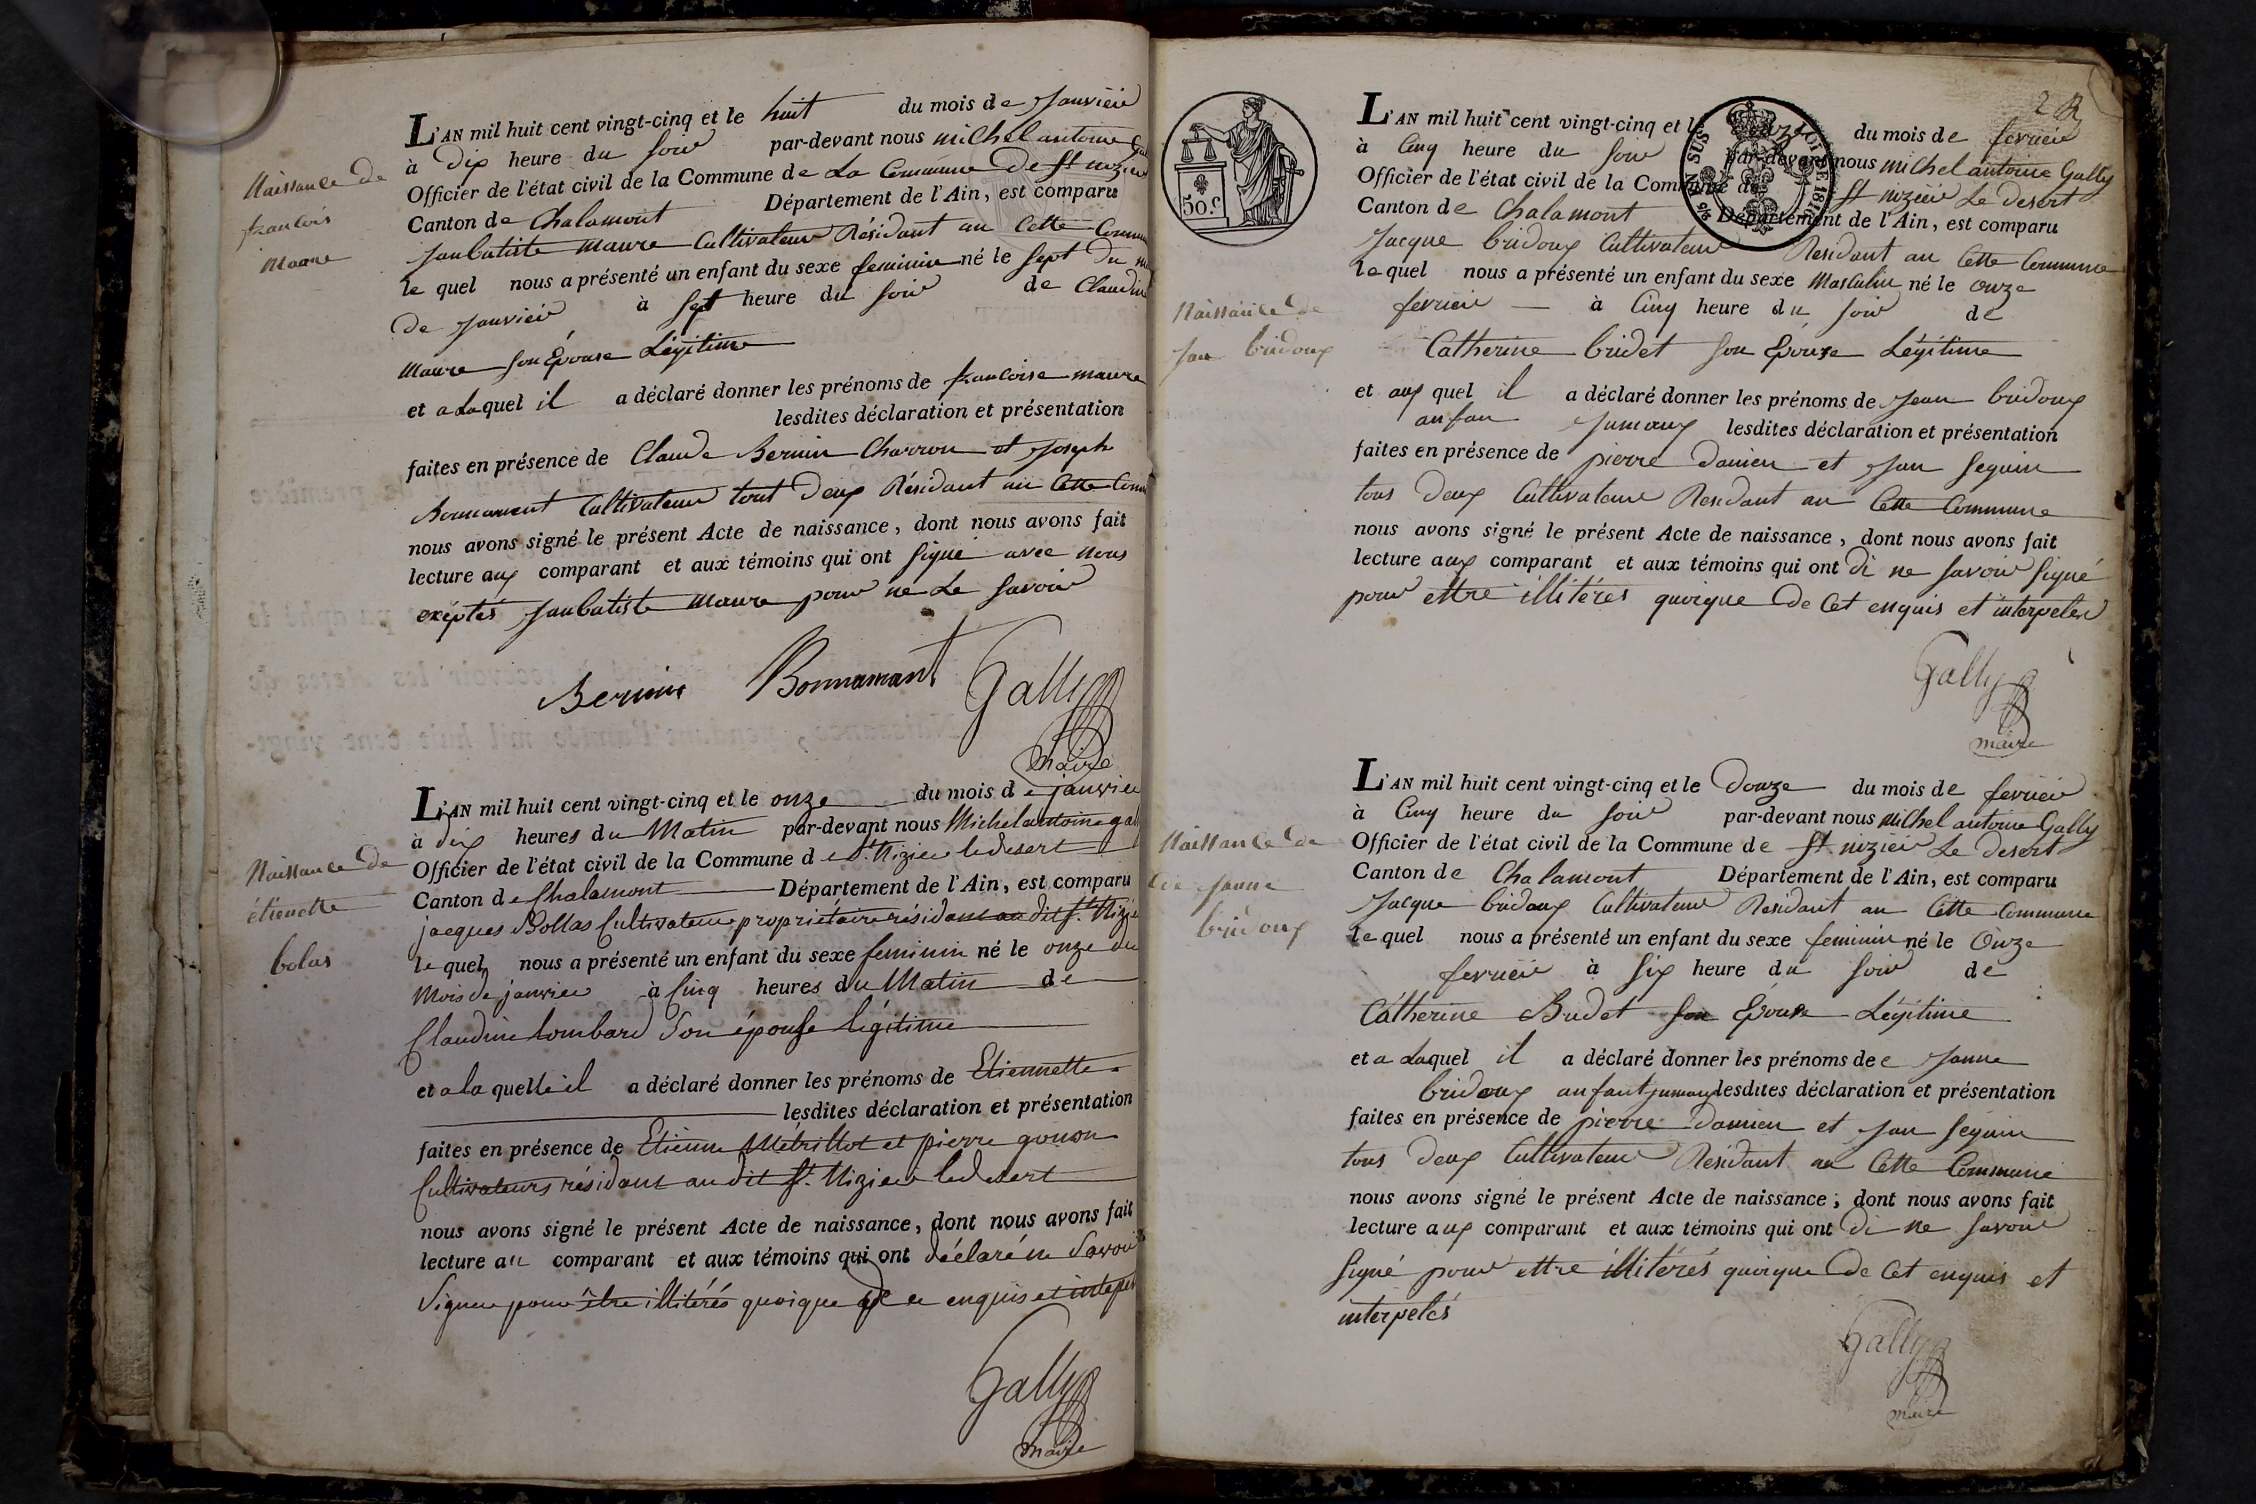 Naissance de
francois
maure
L'AN mil huit cent vingt-cinq et le huit du mois de Janvier
à dix heure du soir par-devant nous michel antoine
Officier de l'état civil de la Commune de La Commune De St nizier
Canton de Chalamont Département de l'Ain, est comparu
Janbatiste maure Cultivateur Résidant au Cette Commune
le quel nous a présenté un enfant du sexe feminin né le sept du
de Janvier à sept heure du soir de Claudine
maure son Epouse Légitime
et a Laquel il a déclaré donner les prénoms de francoise maure
lesdites déclaration et présentation
faites en présence de Claude Bernin Charron et Joseph
Bonnament Cultivateur tout deux Résidant au Cette
nous avons signé le présent Acte de naissance, dont nous avons fait
lecture aux comparant et aux témoins qui ont signé avec nous
exéptés Janbatiste maure pour ne Le savoir
Bernin Bonnamant Gally
maire
Naissance de
étienette
bolas
L'AN mil huit cent vingt-cinq et le onze du mois de janvier
à dix heures du Matin par-devant nous Michel antoine
Officier de l'état civil de la Commune de St. Nizier le desert
Canton de Chalamont Département de l'Ain, est comparu
jacques Bollas Cultivateur propriétaire résidant au dit St. Nizier
le quel nous a présenté un enfant du sexe feminin né le onze du
Mois de janvier à Cinq heures du Matin de
Claudine Lombard Son épouse légitime
et a la quelle il a déclaré donner les prénoms de Etiennette
lesdites déclaration et présentation
faites en présence de Etienne et pierre gonon
Cultivateurs résidant au dit St. Nizier le desert
nous avons signé le présent Acte de naissance, dont nous avons fait
lecture au comparant et aux témoins qui ont déclaré ne Savoir
Signer pour être illitérés quoique de ce enquis et
Gally
maire
2
50 c
L'AN mil huit cent vingt-cinq et le onze du mois de fevrier
à Cinq heure du soir par-devant nous michel antoine Gally
Officier de l'état civil de la Commune de St nizier Le desert
Canton de Chalamont Département de l'Ain, est comparu
Jacque bridoux Cultivateur Residant au Cette Commune
le quel nous a présenté un enfant du sexe Masculin né le onze
fevrier à Cinq heure du soir de
Naissance de
Jan bridoux
Catherine bridet son Epouse Légitime
et aux quel il a déclaré donner les prénoms de Jean bridoux
anfan Jumoux lesdites déclaration et présentation
faites en présence de pierre Damien et Jan Seguin
tous deux Cultivateur Residant au Cette Commune
nous avons signé le présent Acte de naissance, dont nous avons fait
lecture aux comparant et aux témoins qui ont di ne savoir signé
pour ettre illitérés quoique De Cet enquis et interpeler
Gally
maire
Naissance de
de Janne
bridoux
L'AN mil huit cent vingt-cinq et le Douze du mois de fevrier
à Cinq heure du soir par-devant nous michel antoine Gally
Officier de l'état civil de la Commune de St nizier Le Desert
Canton de Chalamont Département de l'Ain, est comparu
Jacque bridoux Cultivateur Residant au Cette Commune
le quel nous a présenté un enfant du sexe feminin né le Onze
fevrier à six heure du soir de
Catherine Bridet son Epouse Légitime
et a Laquel il a déclaré donner les prénoms de Janne
bridoux anfant jumoux lesdites déclaration et présentation
faites en présence de pierre Damien et Jan Seguin
tous Deux Cultivateur Residant au Cette Commune
nous avons signé le présent Acte de naissance; dont nous avons fait
lecture aux comparant et aux témoins qui ont di ne savoir
signé pour ettre illiterés quoique De Cet enquis et
interpelés
Gally
maire